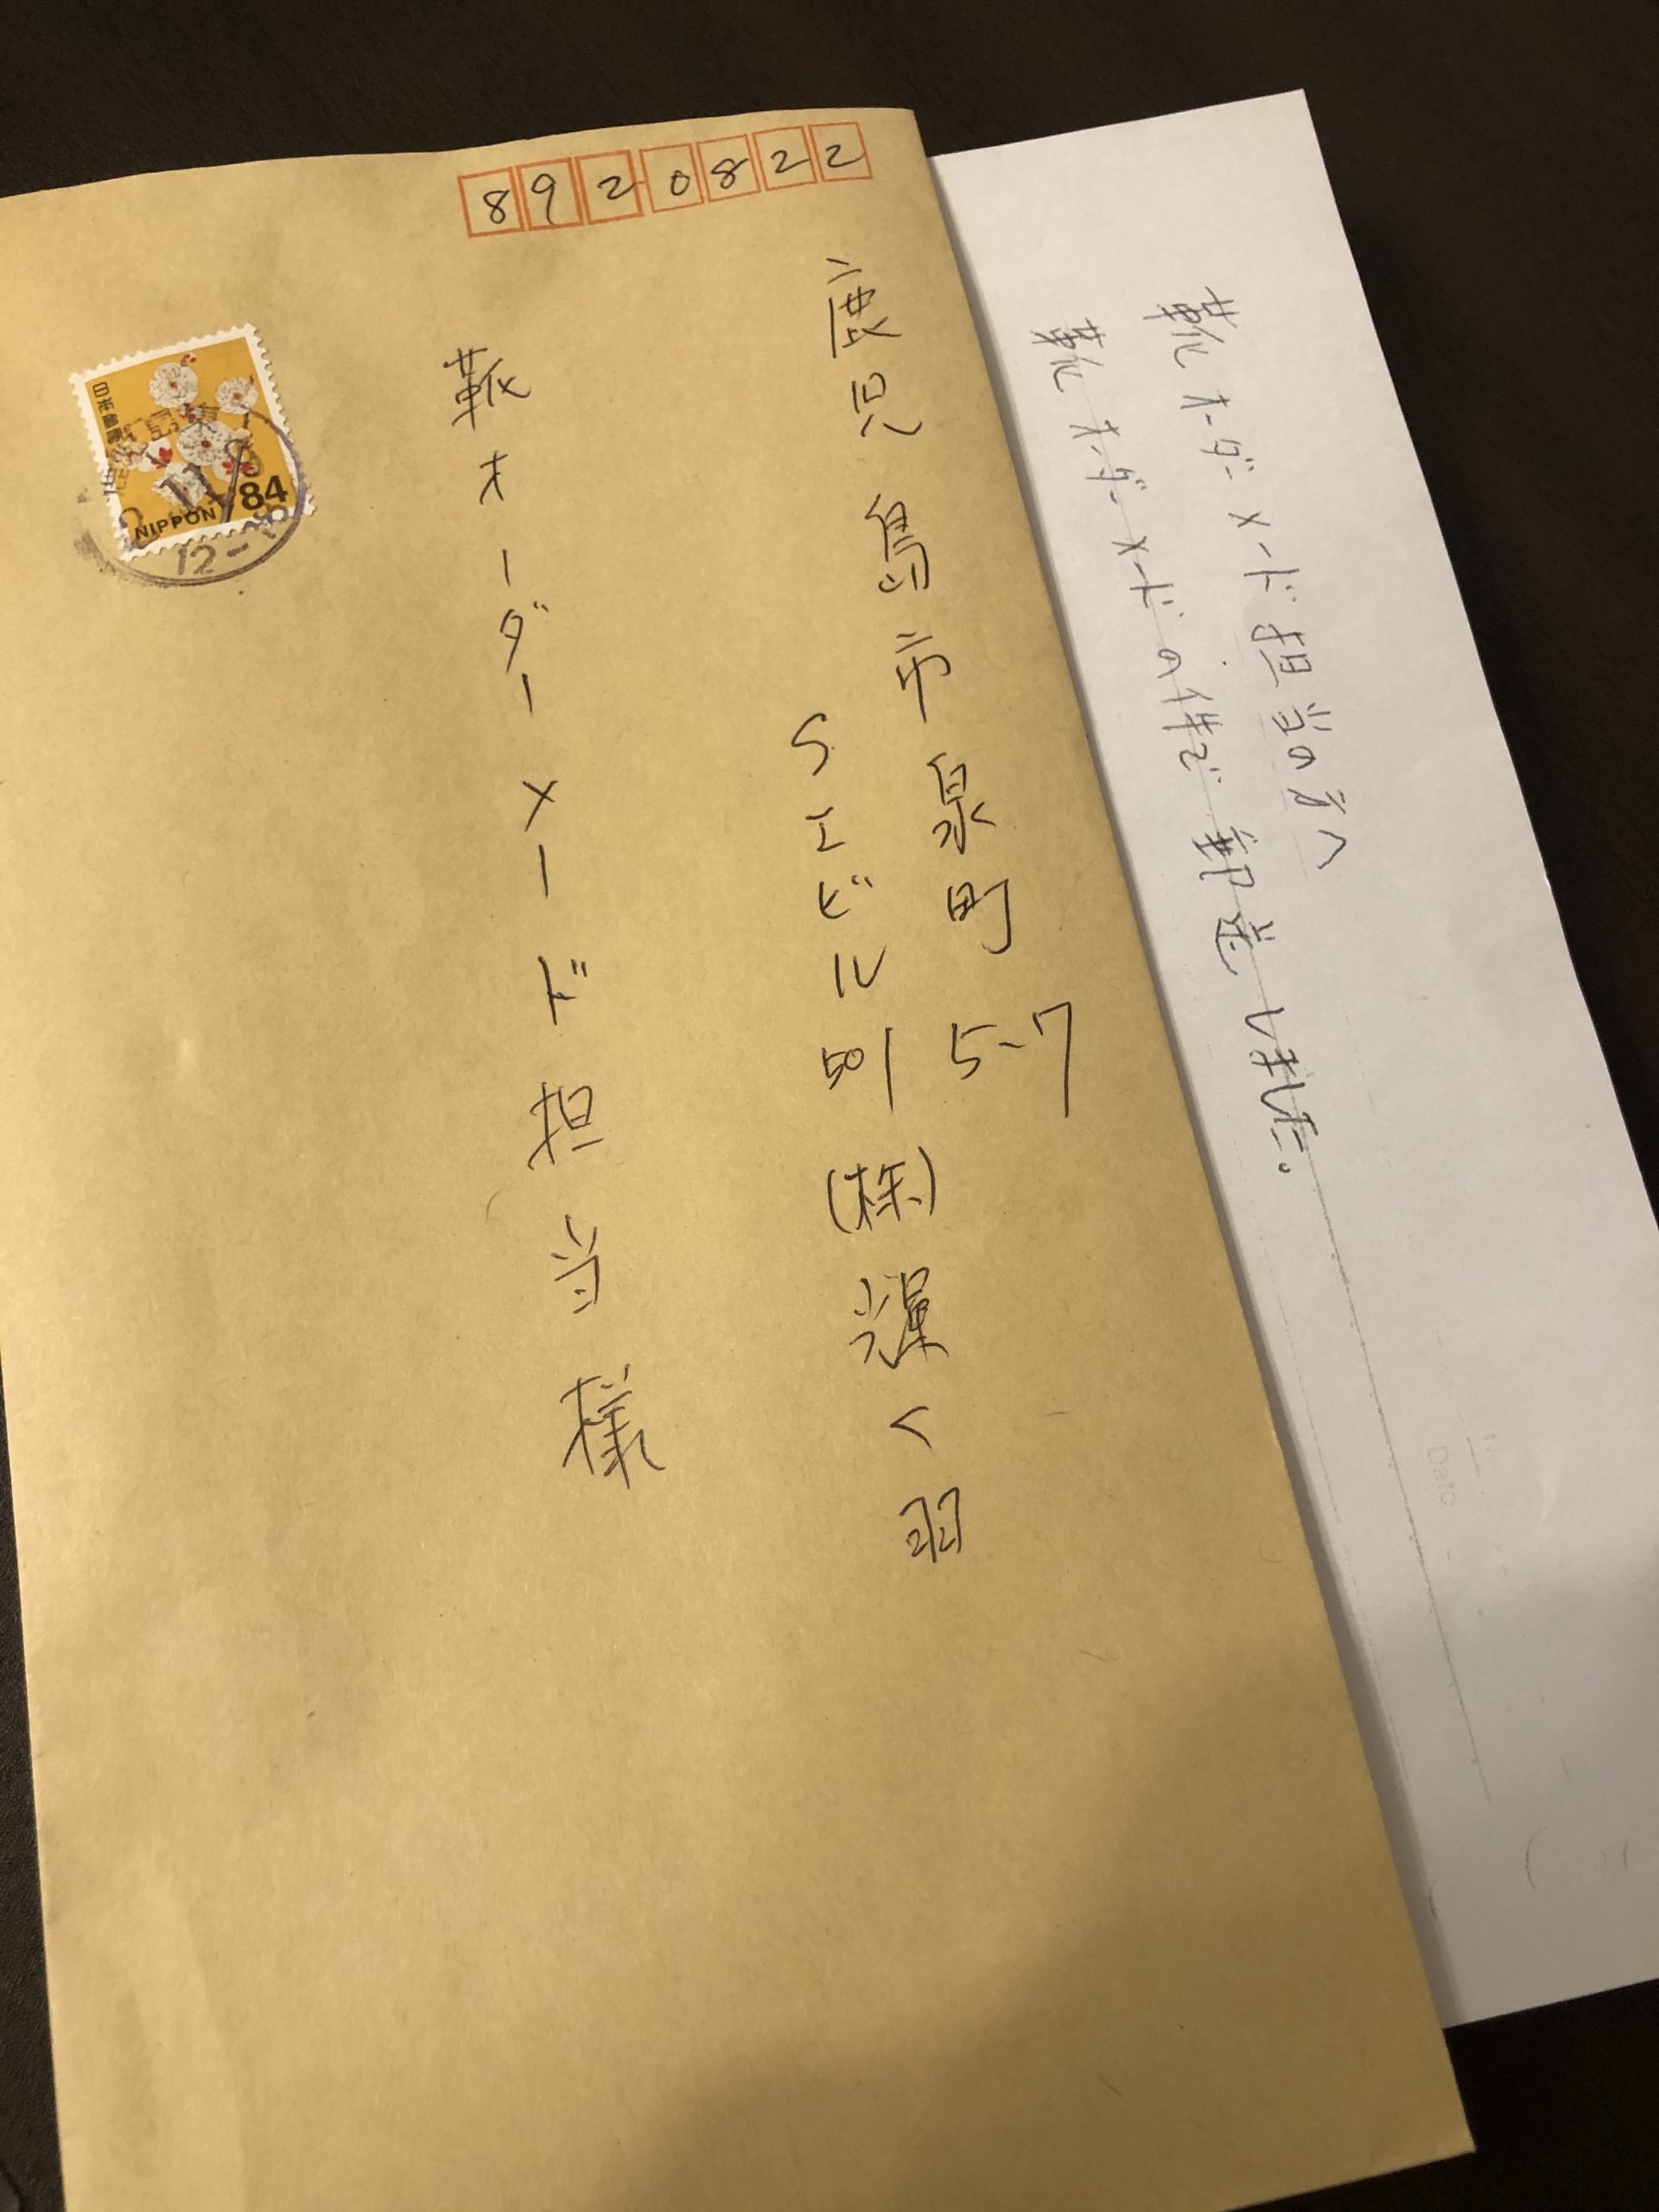 8920822
鹿児島市泉町5-7
SエビルS01(株)輝く羽
靴オーダーメード担当様
日本郵便
84
NIPPON
12-18
靴オーダーメード担当の方へ
靴オーダーメードの件で郵送しました。
Date